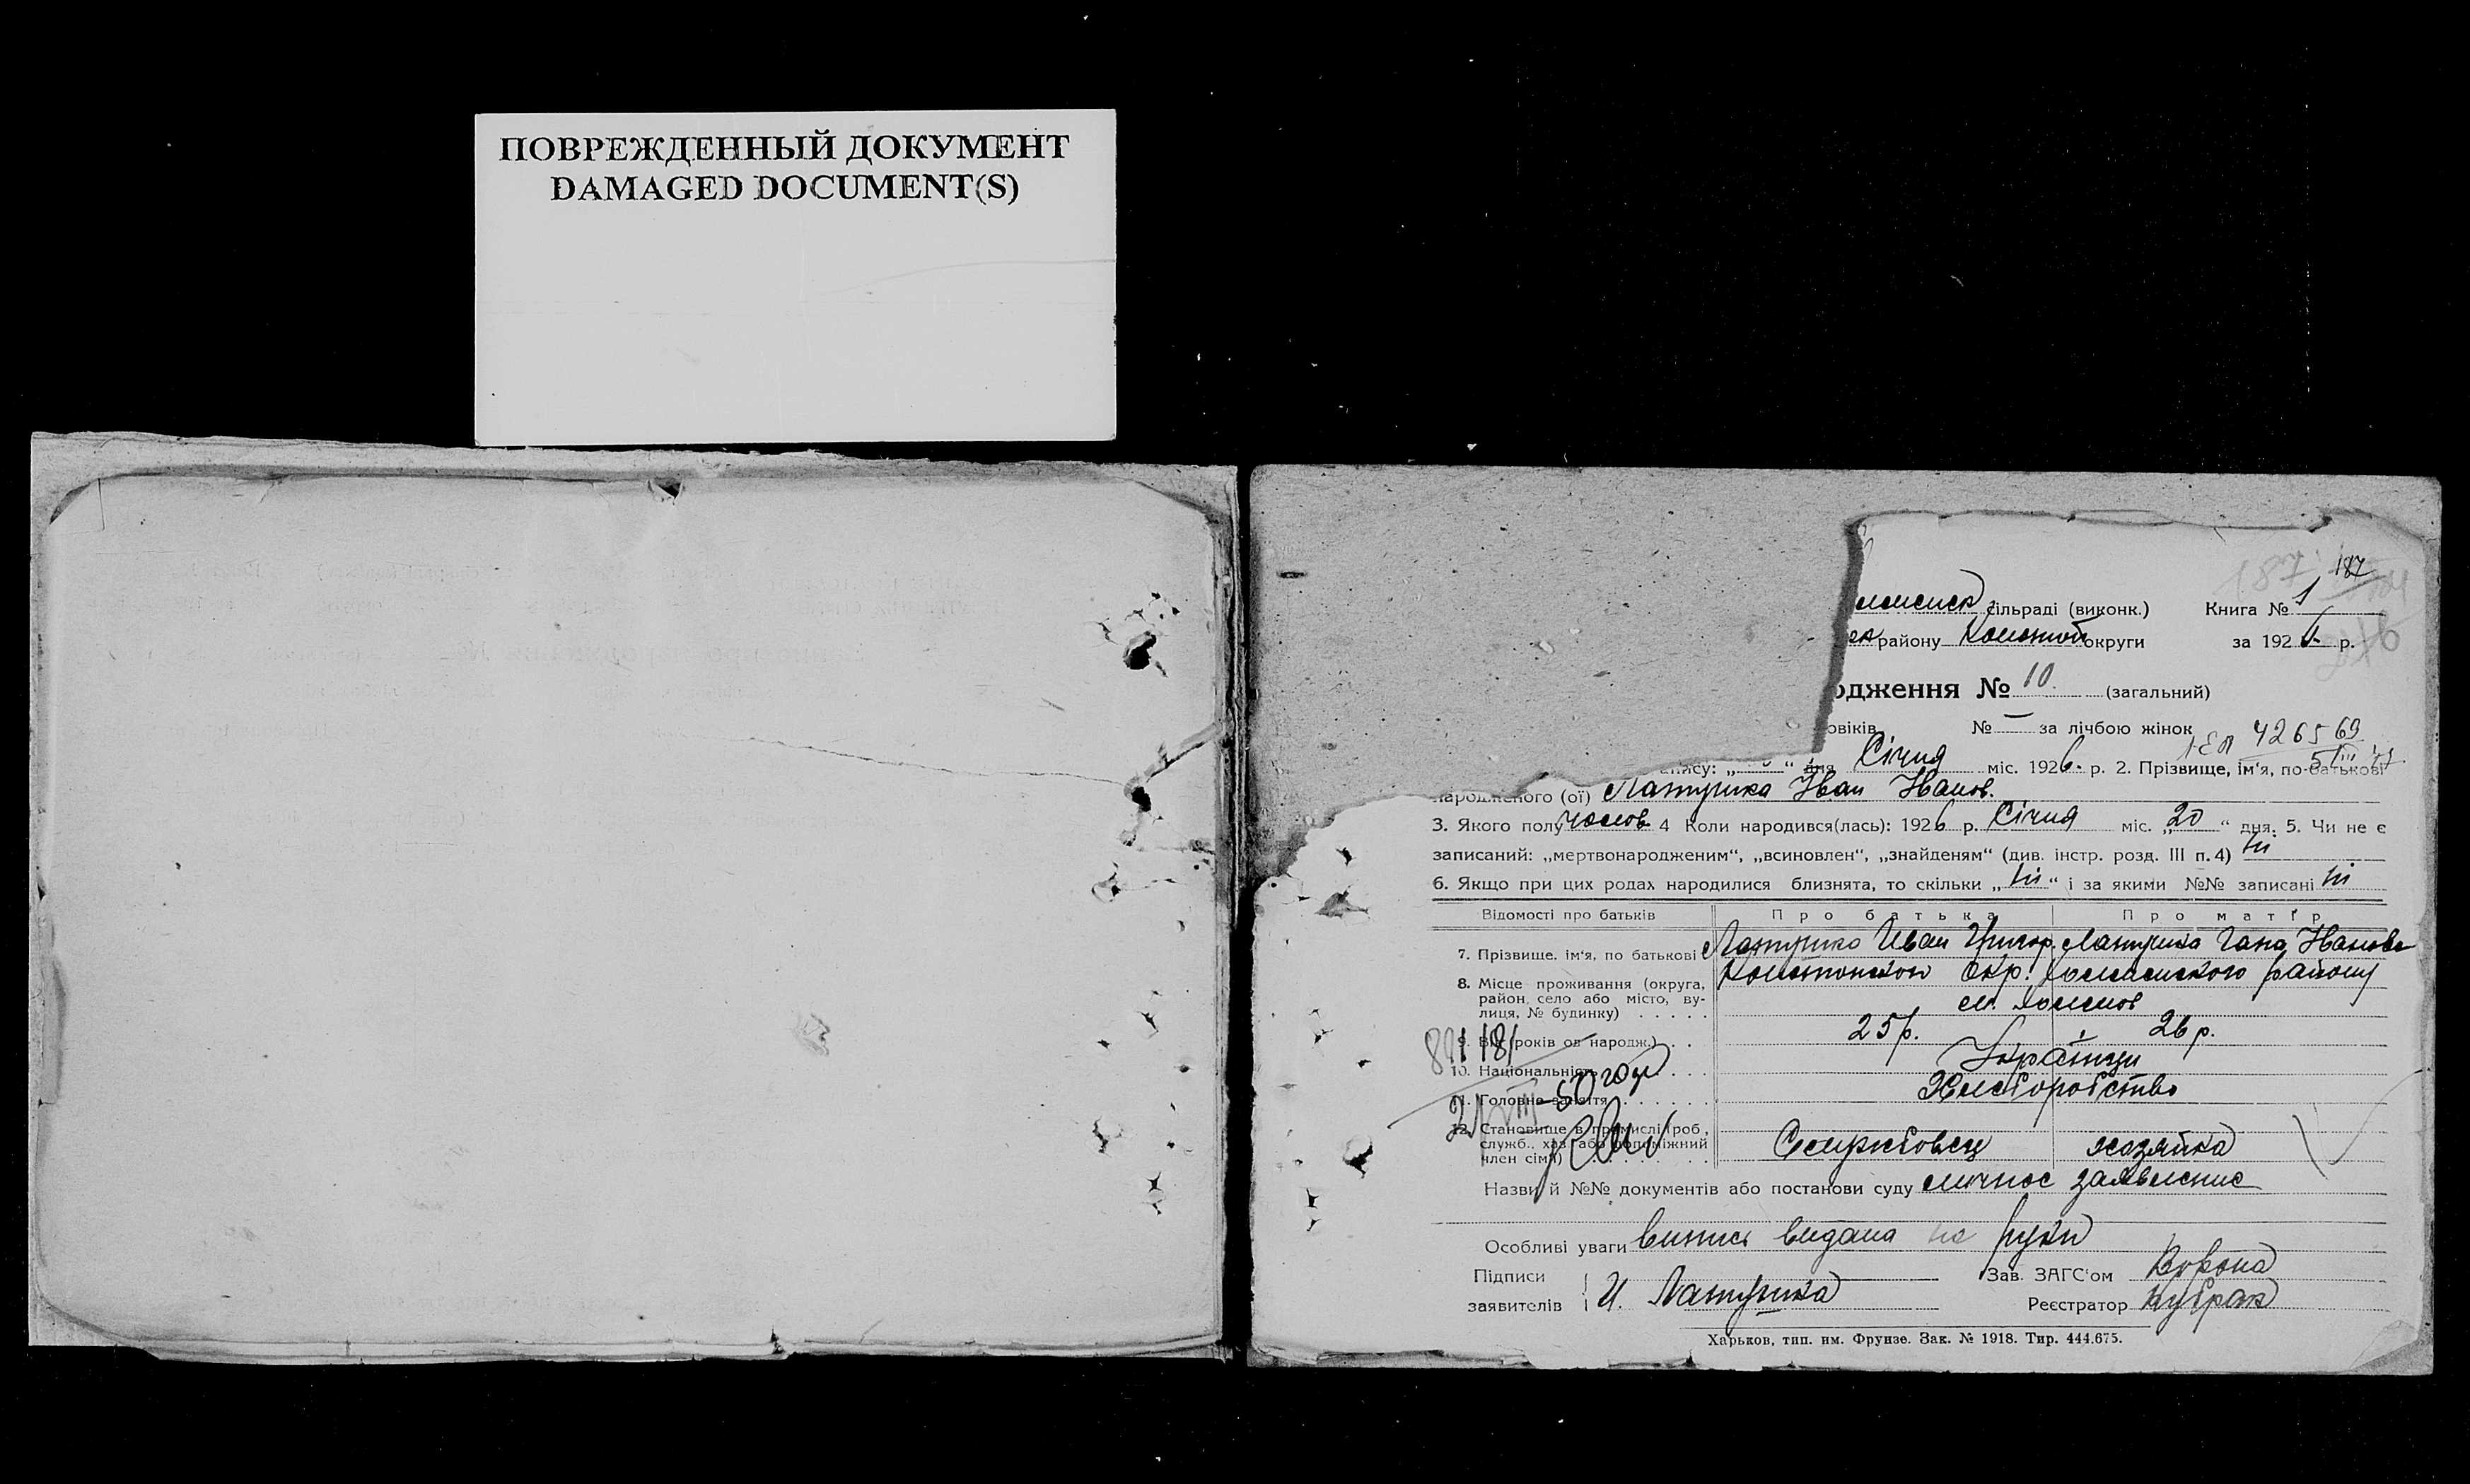 ПОВРЕЖДЕННЫЙ ДОКУМЕНТ
DAMAGED DOCUMENT(S)
187
187
сільраді (виконк.) Книга № 1
району округи за 192 р.
одження № 10 (загальний)
овіків № — за лічбою жінок
426569
запису: „ “ дня Січня міс. 1926. р. 2. Прізвище, ім‘я, по-батькові
народженого (ої) Латушка Іван Іванов.
3. Якого полу чолов. 4 Коли народився(лась): 1926 р. Січня міс. „20“ дня. 5. Чи не є
записаний: „мертвонародженим“, „всиновлен“, „знайденям“ (див. інстр. розд. III п. 4) Ні
6. Якщо при цих родах народилися близнята, то скільки „Ні“ і за якими №№ записані Ні
Відомості про батьків Про батька Про матір
7. Прізвище. ім‘я, по батькові Латушко Иван Григор. Латушка Гана Іванова
8. Місце проживання (округа, район, село або місто, вулиця, № будинку) Конотопской Окр. району
9. Вік (років от народж.) 25 р. 26 р.
10. Національність Українци
11. Головне заняття Хлеборобство
12. Становище в промислі (роб., служб., хаз. або допоміжний член сім‘ї) хозяйка
Назви й №№ документів або постанови суду личное заявление
Особливі уваги випись видана на руки
Підписи заявителів И. Латушка
Зав. ЗАГС‘ом Ворона
Реєстратор Кубрак
Харьков, тип. им. Фрунзе. Зак. № 1918. Тир. 444.675.